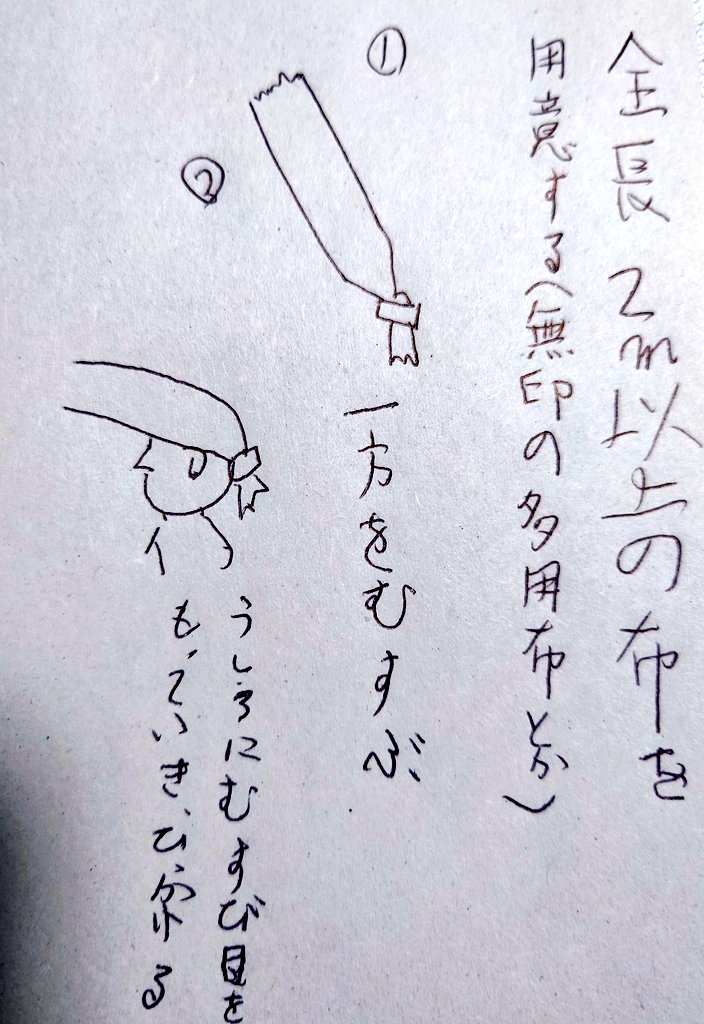 全長2m以上の布を
用意する(無印の多用布とか)
①
一方をむすぶ
②
うしろにむすび目を
もっていき、ひっかける